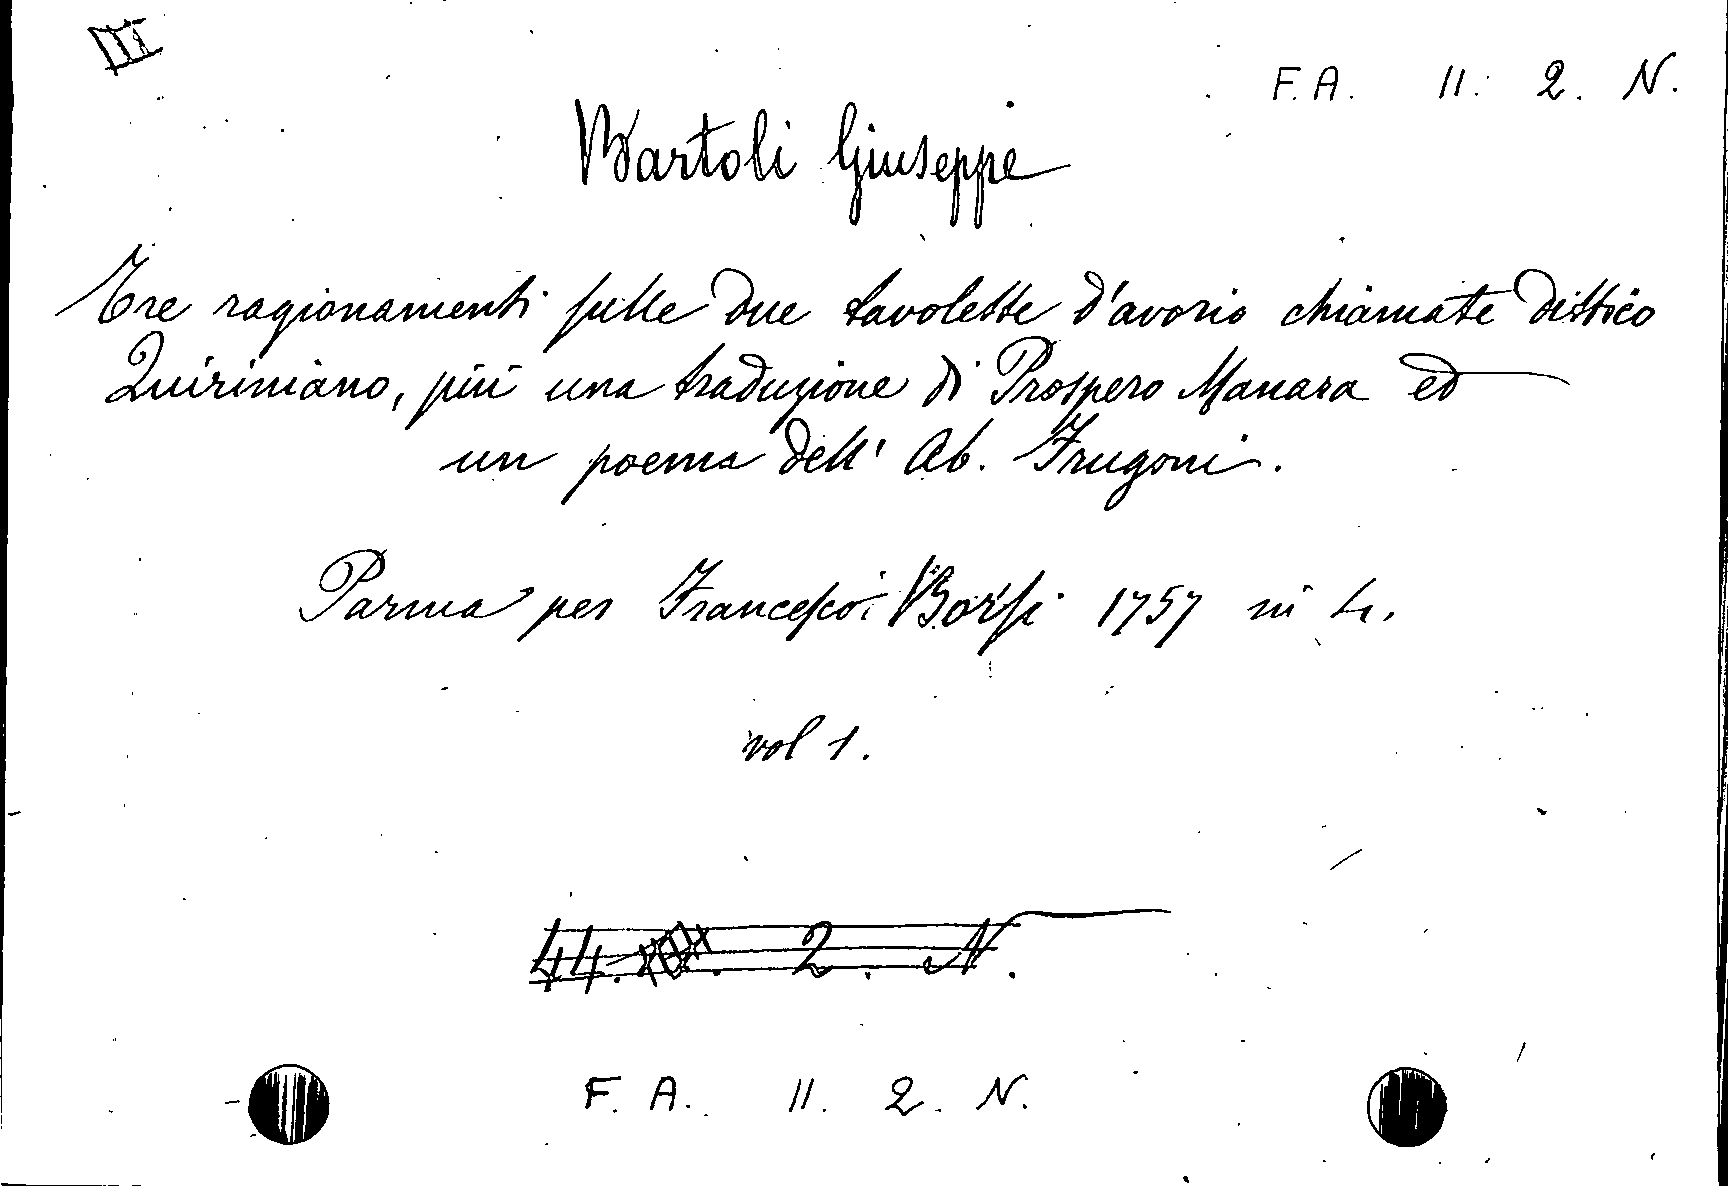 III
F. A. 11. 2. N.
Bartoli Giuseppe
Tre ragionamenti sulle due tavolette d'avorio chiamate dittico
Quiriniano, più una traduzione di Prospero Manara ed
un poema dell' Ab. Frugoni.
Parma per Francesco Borsi 1757 in 4.
vol 1.
44. 2. N.
F. A. 11. 2. N.